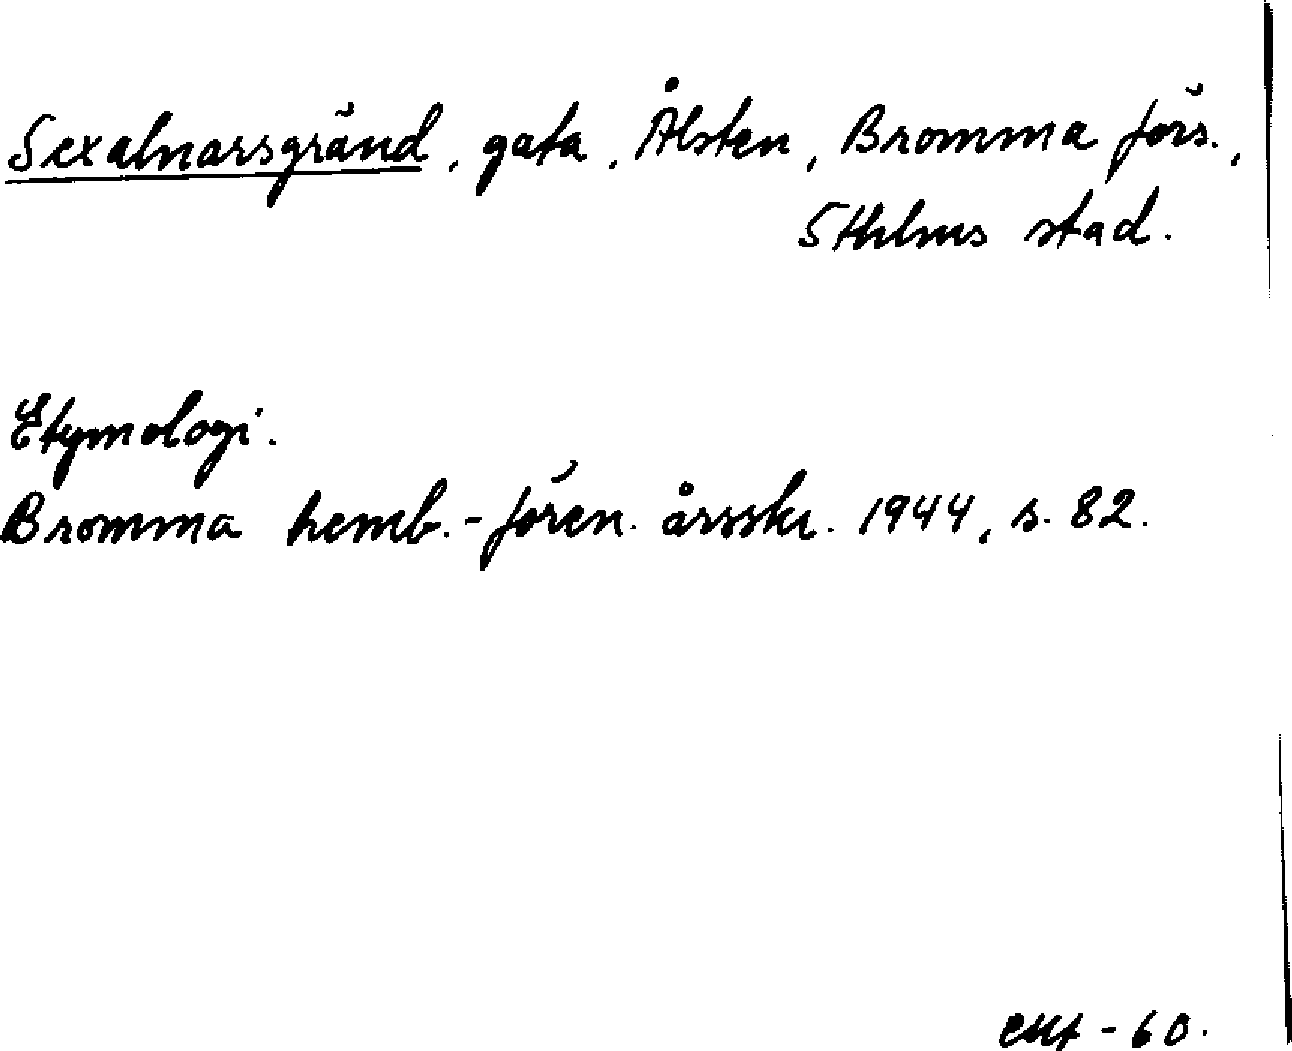 Sexalnarsgränd, gata, Ålsten, Bromma förs.,
Sthlms stad.
Etymologi.
Bromma hemb.-fören. årsskr. 1944, s. 82.
-60.